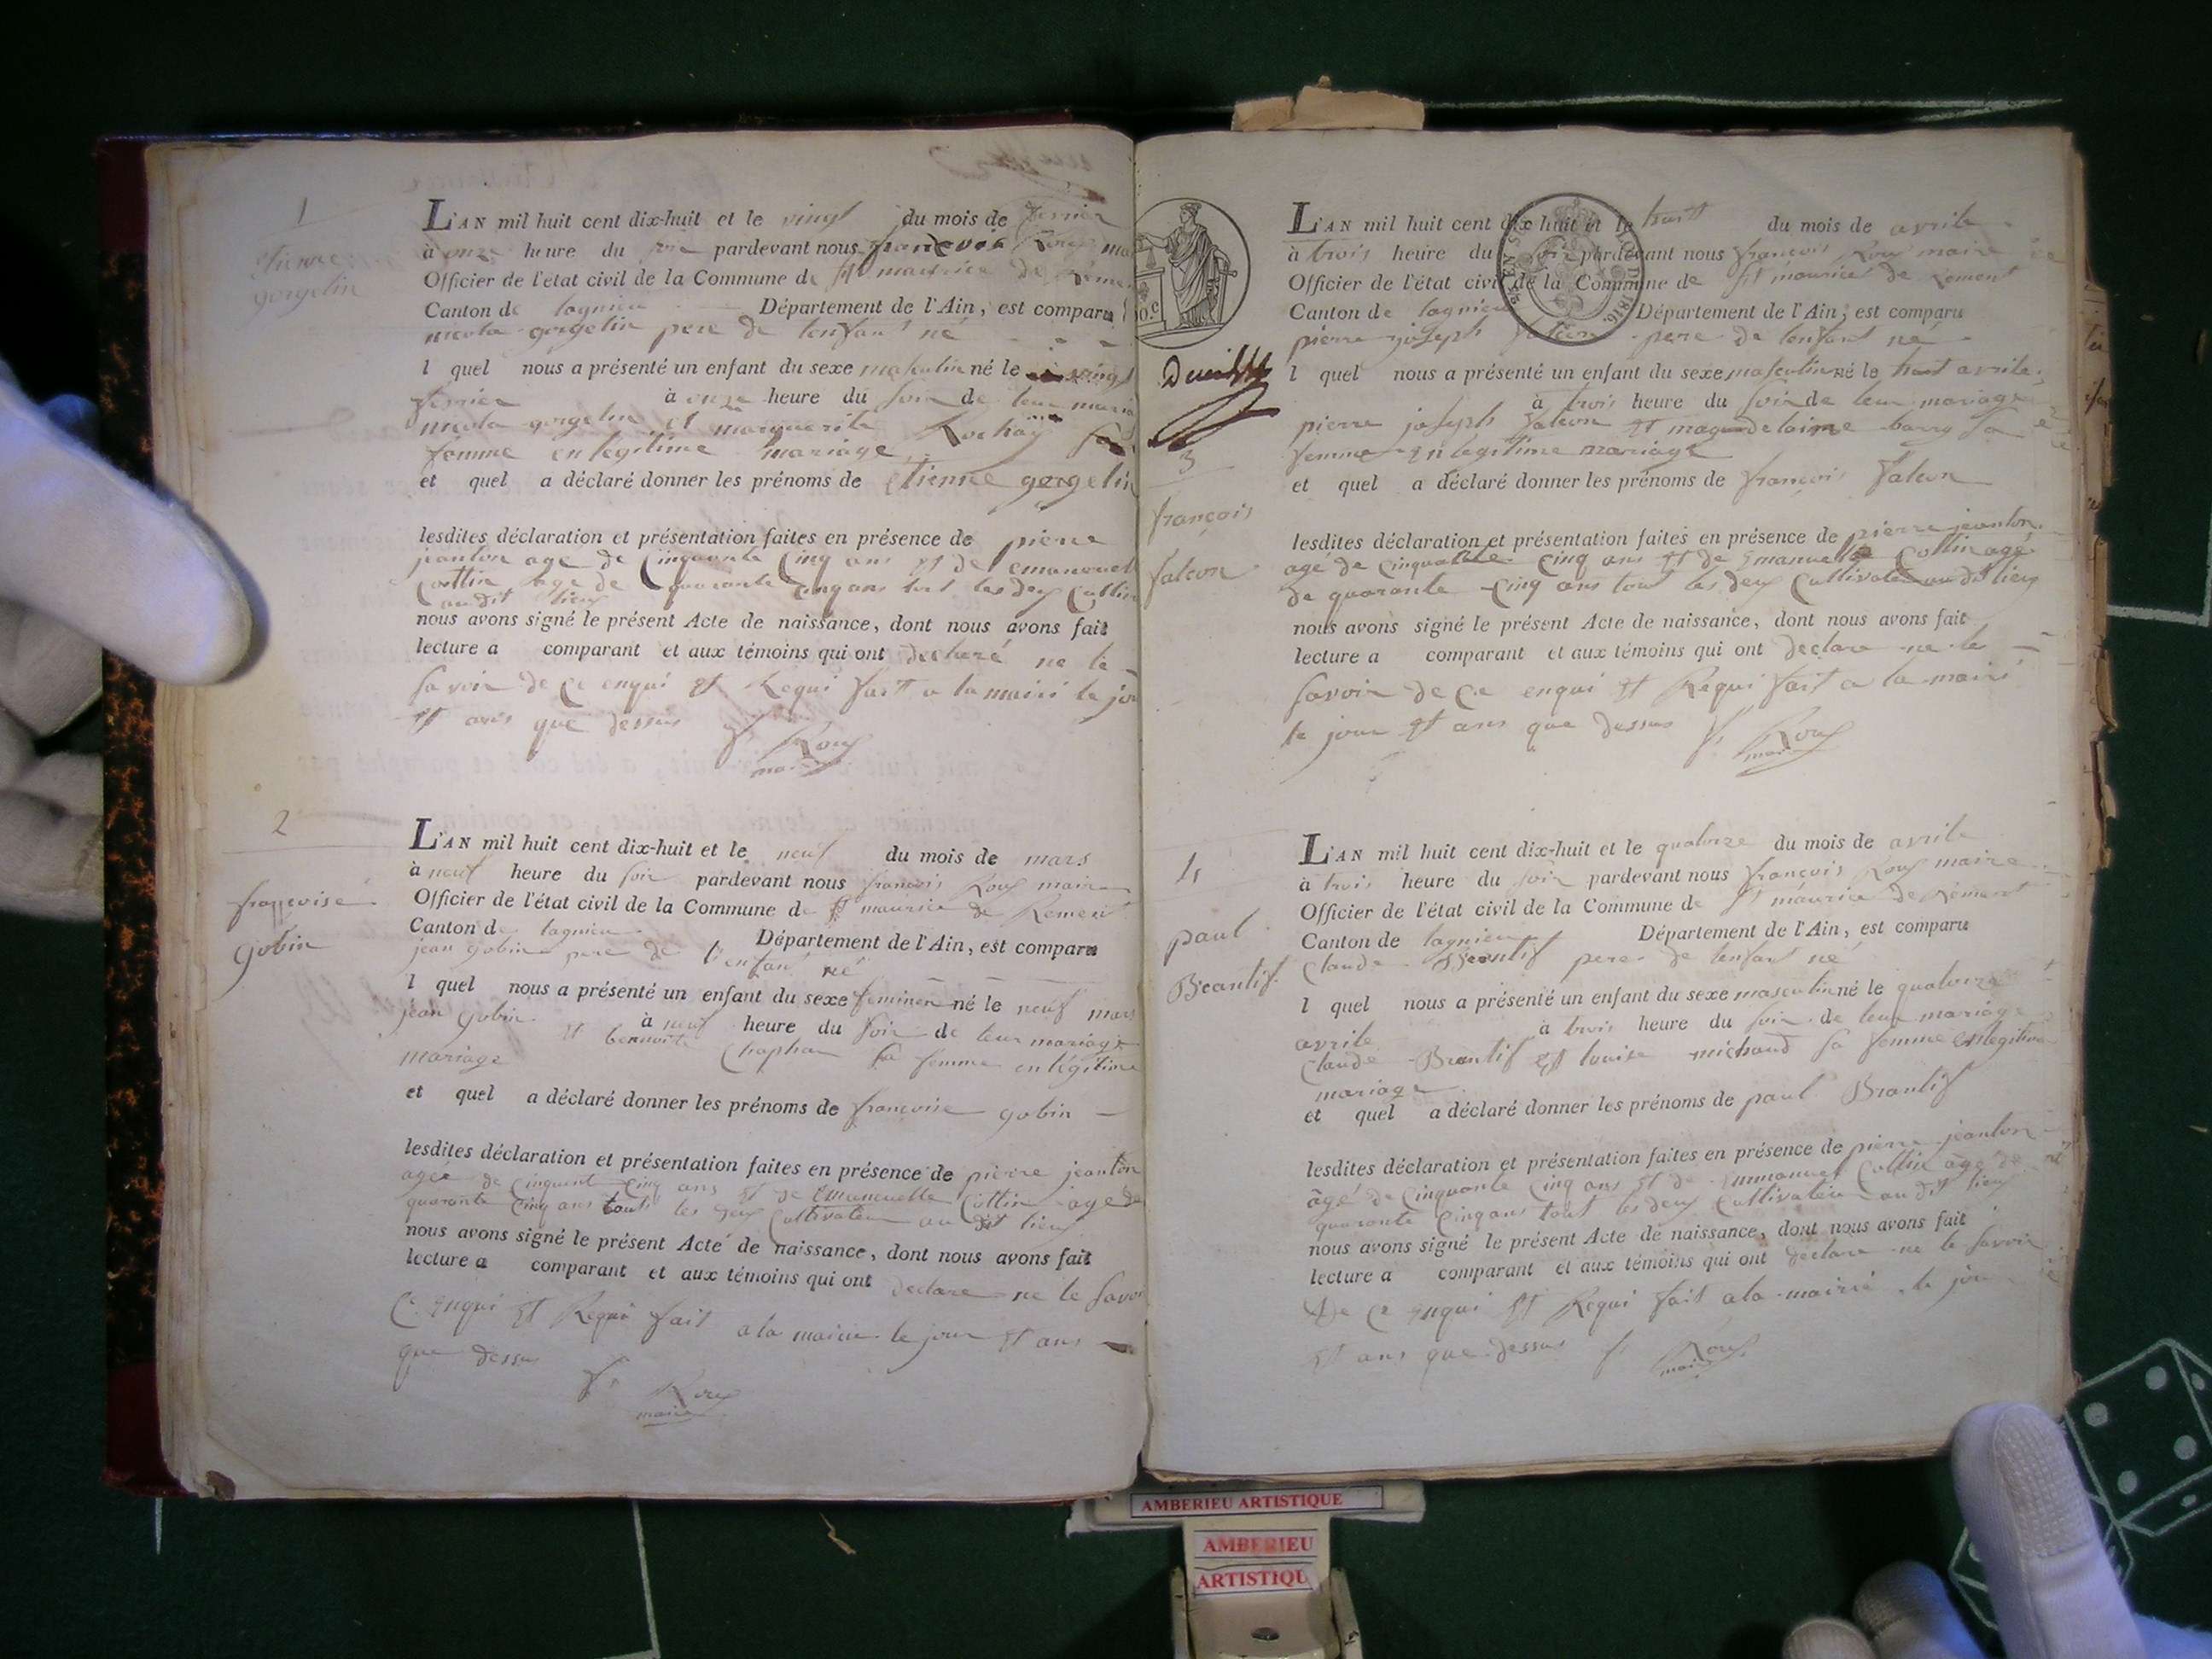 1
etienne
gorgelin
L'AN mil huit cent dix-huit et le vingt du mois de fevrier
à onze heure du soir pardevant nous francois Roux mai
Officier de l'etat civil de la Commune de st maurice de Réme
Canton de lagnieu Département de l'Ain, est comparu
nicola gorgelin pere de lenfant né
l quel nous a présenté un enfant du sexe maskulin né le vingt
fevrier à onze heure du soir de leur maria
nicola gorgelin et marguerite Rochay sa
femme en legitime mariage
et quel a déclaré donner les prénoms de Etienne gorgelin
lesdites déclaration et présentation faites en présence de pierre
jeanton age de Cinquante Cinq ans et de emanuell
Cottin age de quarante Cinq ans tout les deux Cultiv
au dit lieux
nous avons signé le présent Acte de naissance, dont nous avons fait
lecture a comparant et aux témoins qui ont declaré ne le
savoir de ce enqui et Requi fait a la mairi le jou
et ans que dessus fs Roux
maire
2
françoise
gobin
L'AN mil huit cent dix-huit et le neuf du mois de mars
à neuf heure du soir pardevant nous francois Roux maire
Officier de l'état civil de la Commune de st maurice de Remen
Canton de lagnieu Département de l'Ain, est comparu
jean gobin pere de l'enfant né
l quel nous a présenté un enfant du sexe feminen né le neuf mars
à neuf heure du soir de leur mariage
jean gobin et bennoite Chaphan sa femme en légitime
mariage
et quel a déclaré donner les prénoms de francoise gobin
lesdites déclaration et présentation faites en présence de pierre jeanton
agée de Cinquent Cinq ans et de Emanuelle Cottin age de
quarante Cinq ans tout les deux Cultivateur au dit lieux
nous avons signé le présent Acte de naissance, dont nous avons fait
lecture a comparant et aux témoins qui ont declare ne le savoir
Ce enqui et Requi fait a la mairie le jour et ans
que dessus fs Roux
maire
3
françois
falcon
L'AN mil huit cent dix huit et le huit du mois de avrile
à trois heure du soir pardevant nous françois Roux maire
Officier de l'état civil de la Commune de st maurice de Remens
Canton de lagnieu Département de l'Ain, est comparu
pierre joseph falcon pere de lenfant né
l quel nous a présenté un enfant du sexe masculin né le huit avrile
à trois heure du soir de leur mariage
pierre joseph falcon et magdelaine barry sa
femme en legitime mariage
et quel a déclaré donner les prénoms de françois falcon
lesdites déclaration et présentation faites en présence de pierre jeanton
age de Cinquante Cinq ans et de Emanuelle Cottin agé
de quarante Cinq ans tout les deux Cultivateur au dit lieux
nous avons signé le présent Acte de naissance, dont nous avons fait
lecture a comparant et aux témoins qui ont declare ne le
savoir de Ce enqui et Requi fait a la mairi
le jour et ans que dessus fs Roux
maire
4
paul
Brantif
L'AN mil huit cent dix-huit et le quatorze du mois de avrile
à trois heure du soir pardevant nous françois Roux maire
Officier de l'état civil de la Commune de st maurice de Rémens
Canton de lagnieu Département de l'Ain, est comparu
Claude Brantif pere de lenfant né
l quel nous a présenté un enfant du sexe masculin né le quatorze
avrile à trois heure du soir de leur mariage
Claude Brantif et louise michaud sa femme en legitime
mariage
et quel a déclaré donner les prénoms de paul Brantif
lesdites déclaration et présentation faites en présence de pierre jeanton
âgé de Cinquante Cinq ans et de Emmanuel Cottin âgé de
quarante Cinq ans tout les deux Cultivateur au dit lieux
nous avons signé le présent Acte de naissance, dont nous avons fait
lecture a comparant et aux témoins qui ont déclare ne le savoir
de ce enqui et Requi fait a la mairie le jour
et ans que dessus fs Roux
maire
AMBERIEU ARTISTIQUE
AMBERIEU
ARTISTIQU